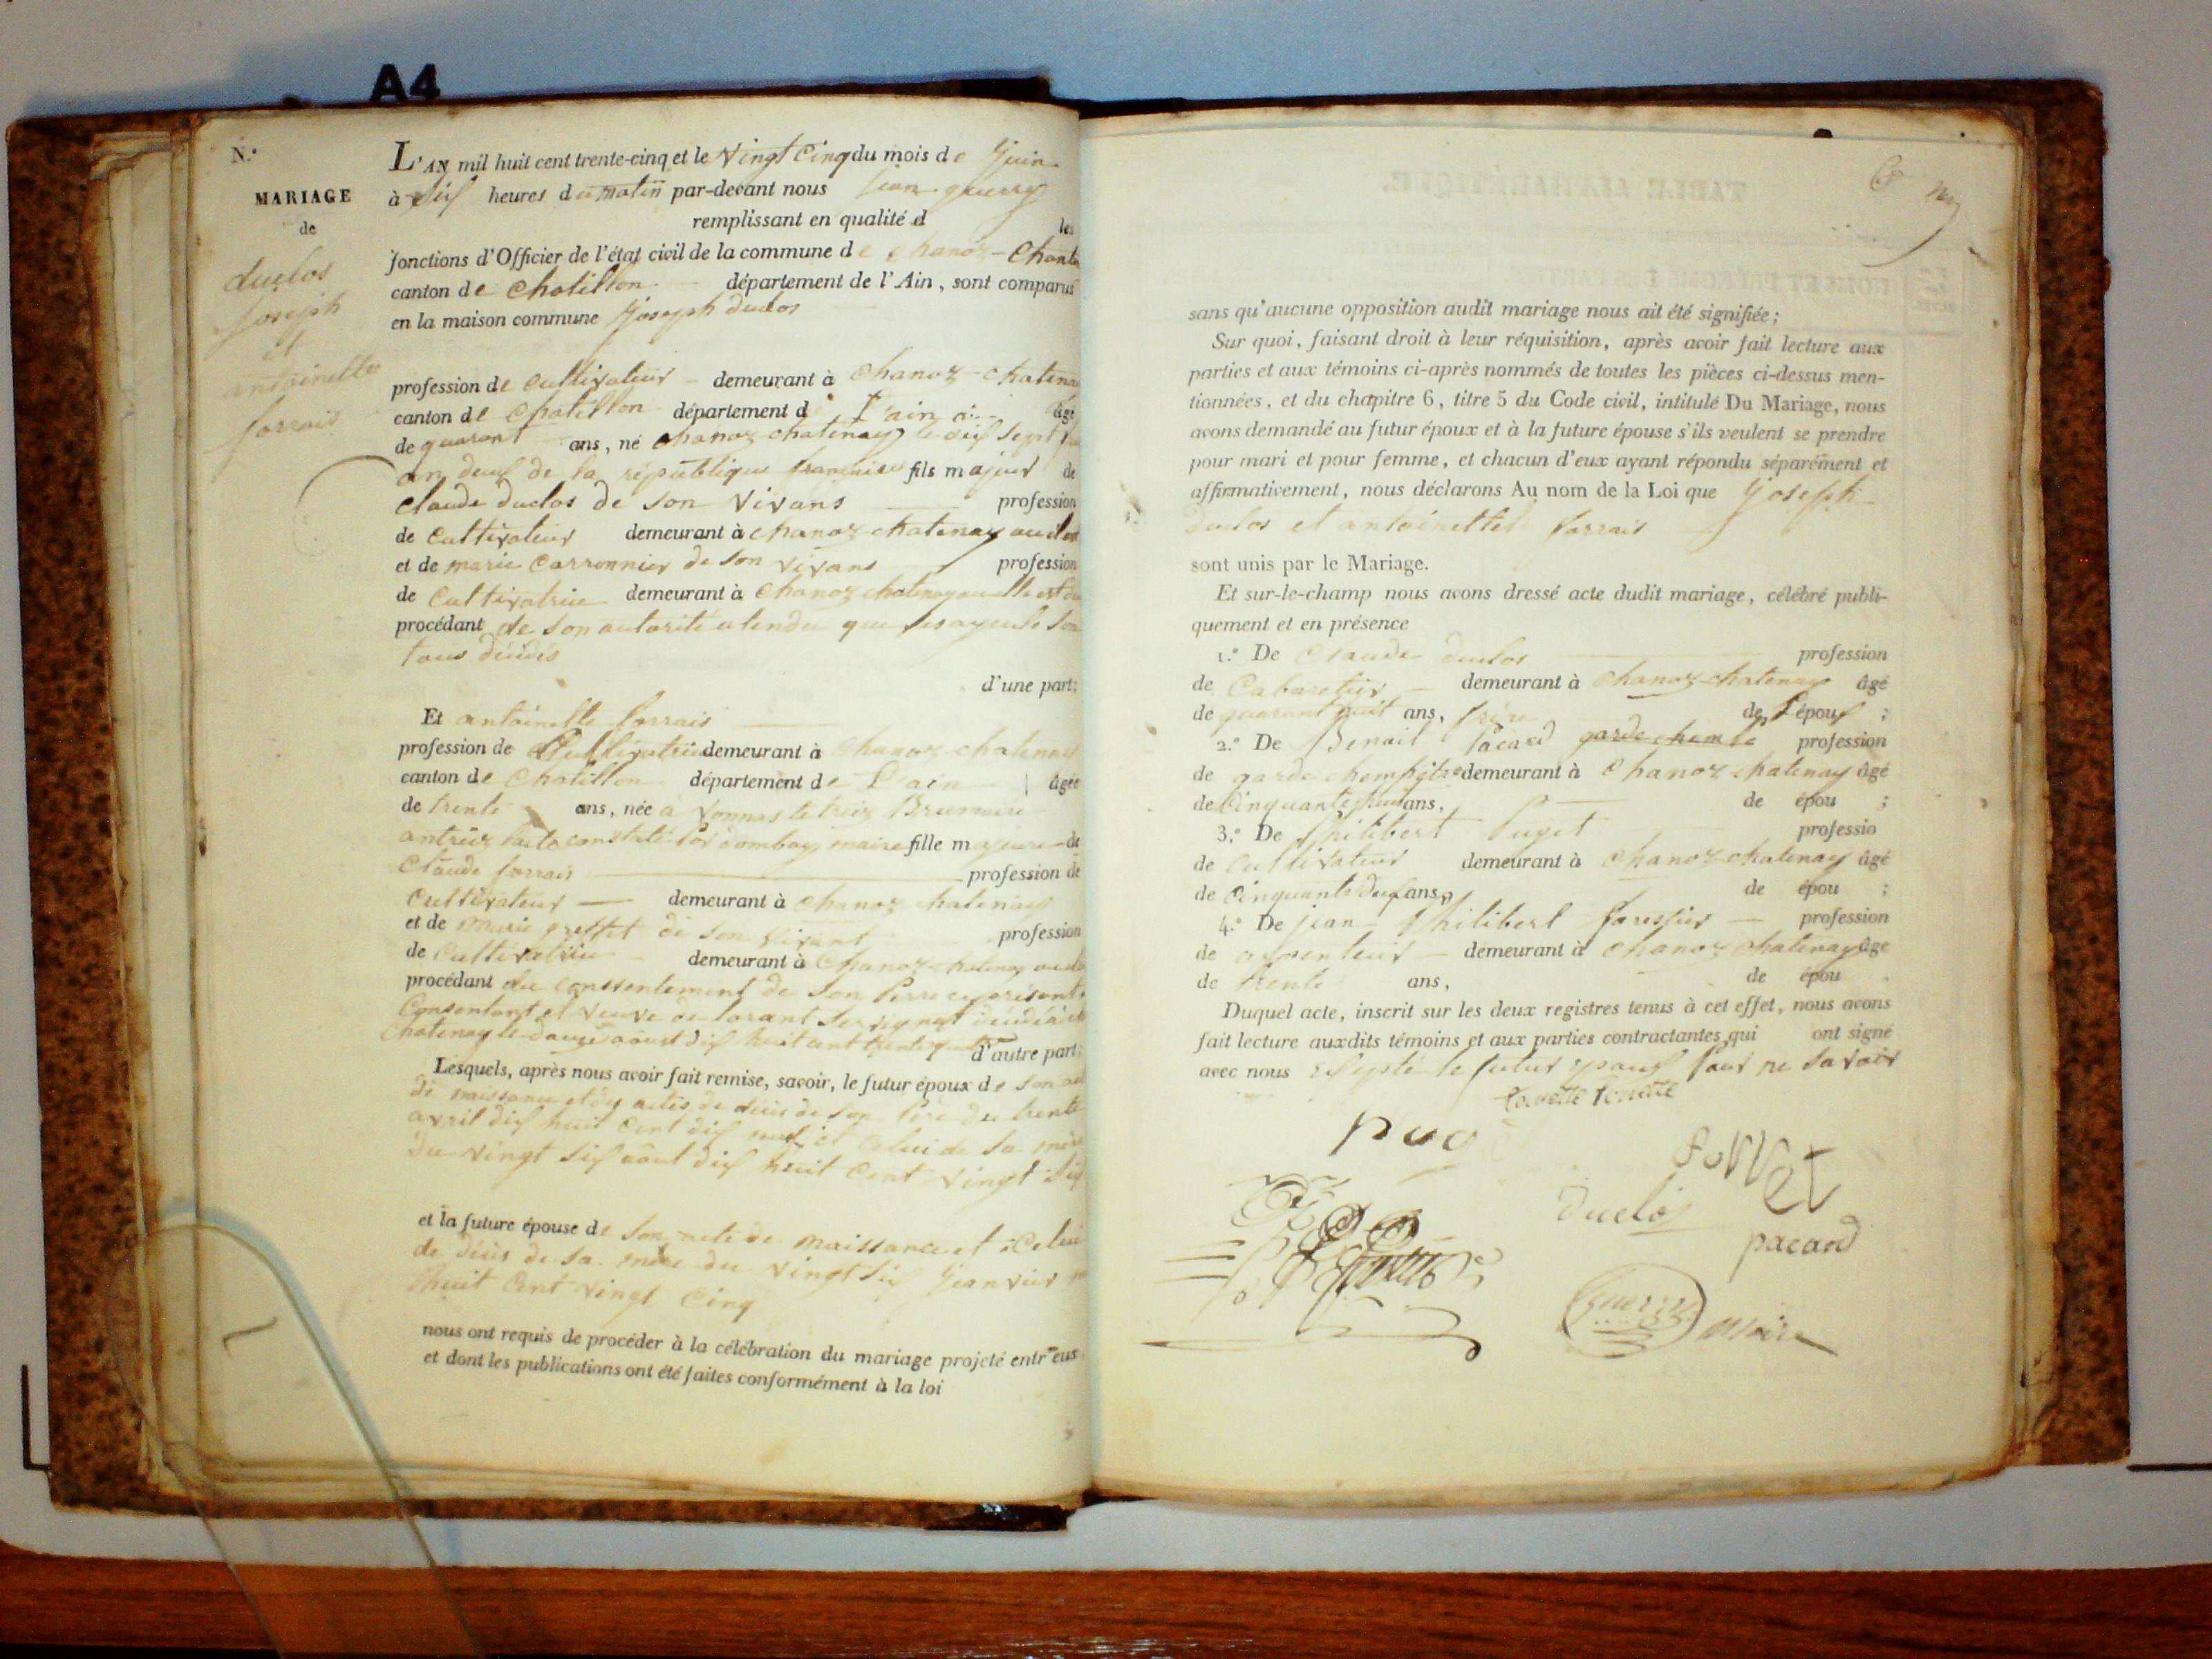 A4
N.°
MARIAGE
de
duclos
joseph
et
antoinette
forrais
L'AN mil huit cent trente-cinq et le vingt cinq du mois de juin
à six heures du matin par-devant nous jean guerry
remplissant en qualité d les
fonctions d'Officier de l'état civil de la commune de chanoz-Chate
canton de Chatillon département de l'Ain, sont comparus
en la maison commune joseph duclos
profession de cultivateur demeurant à Chanoz-chatenay
canton de Chatillon département d l'ain âgé
de quarant ans, né chanoz chatenay le dix sept
an deux de la république française fils majeur de
claude duclos de son vivans profession
de cultivateur demeurant à chanoz chatenay
et de marie Carronnier de son vivans profession
de Cultivatrice demeurant à Chanoz chatenay ou elle est
procédant de son autorité atendu que ses ayeuls son
tous décédés
d'une part;
Et antoinette forrais
profession de Cultivatrice demeurant à Chanoz-chatenay
canton de Chatillon département de L'ain âgée
de trente ans, née a vonnas le treiz Brumaire
an treiz constaté par dombey maire fille majeure de
Claude forrais profession de
Cultivateur demeurant à Chanoz chatenay
et de Marie greffet de son vivant profession
de Cultivatrice demeurant à Chanoz-chatenay
procédant du consentement de son Perre cy présent
Consentant et veuve de lorant décédé
Chatenay le douze aoust dix huit cent trente d'autre part:
Lesquels, après nous avoir fait remise, savoir, le futur époux de son
de naissance et des actes de décès de son Pere du trente
avril dix huit Cent dix neuf et Celui de Sa mère
Du vingt six août dix huit Cent vingt six
et la future épouse de Son acte de naissance et Celui
de décès de Sa mère du vingt six jeanvier
huit Cent vingt Cinq
nous ont requis de procéder à la célébration du mariage projeté entr'eux
et dont les publications ont été faites conformément à la loi
sans qu'aucune opposition audit mariage nous ait été signifiée;
Sur quoi, faisant droit à leur réquisition, après avoir fait lecture aux
parties et aux témoins ci-après nommés de toutes les pièces ci-dessus men-
tionnées, et du chapitre 6, titre 5 du Code civil, intitulé Du Mariage, nous
avons demandé au futur époux et à la future épouse s'ils veulent se prendre
pour mari et pour femme, et chacun d'eux ayant répondu séparément et
affirmativement, nous déclarons Au nom de la Loi que joseph
duclos et antoinette forrais
sont unis par le Mariage.
Et sur-le-champ nous avons dressé acte dudit mariage, célébré publi-
quement et en présence
1.° De Claude duclos profession
de Cabaretier demeurant à Chanoz-chatenay âgé
de quarant huit ans, frère de L'époux;
2.° De Benoit Pacard profession
de garde demeurant à Chanoz chatenay âgé
de Cinquante ans, de épou ;
3.° De Philibert Puget professio
de Cultivateur demeurant à Chanoz chatenay âgé
de Cinquante deux ans, de épou ;
4.° De jean Philibert forestier profession
de demeurant à Chanoz Chatenay âgé
de trente ans, de épou
Duquel acte, inscrit sur les deux registres tenus à cet effet, nous avons
fait lecture auxdits témoins et aux parties contractantes qui ont signé
avec nous le futur epoux Pour ne savoir
Duclos
pacard
Guerry Maire